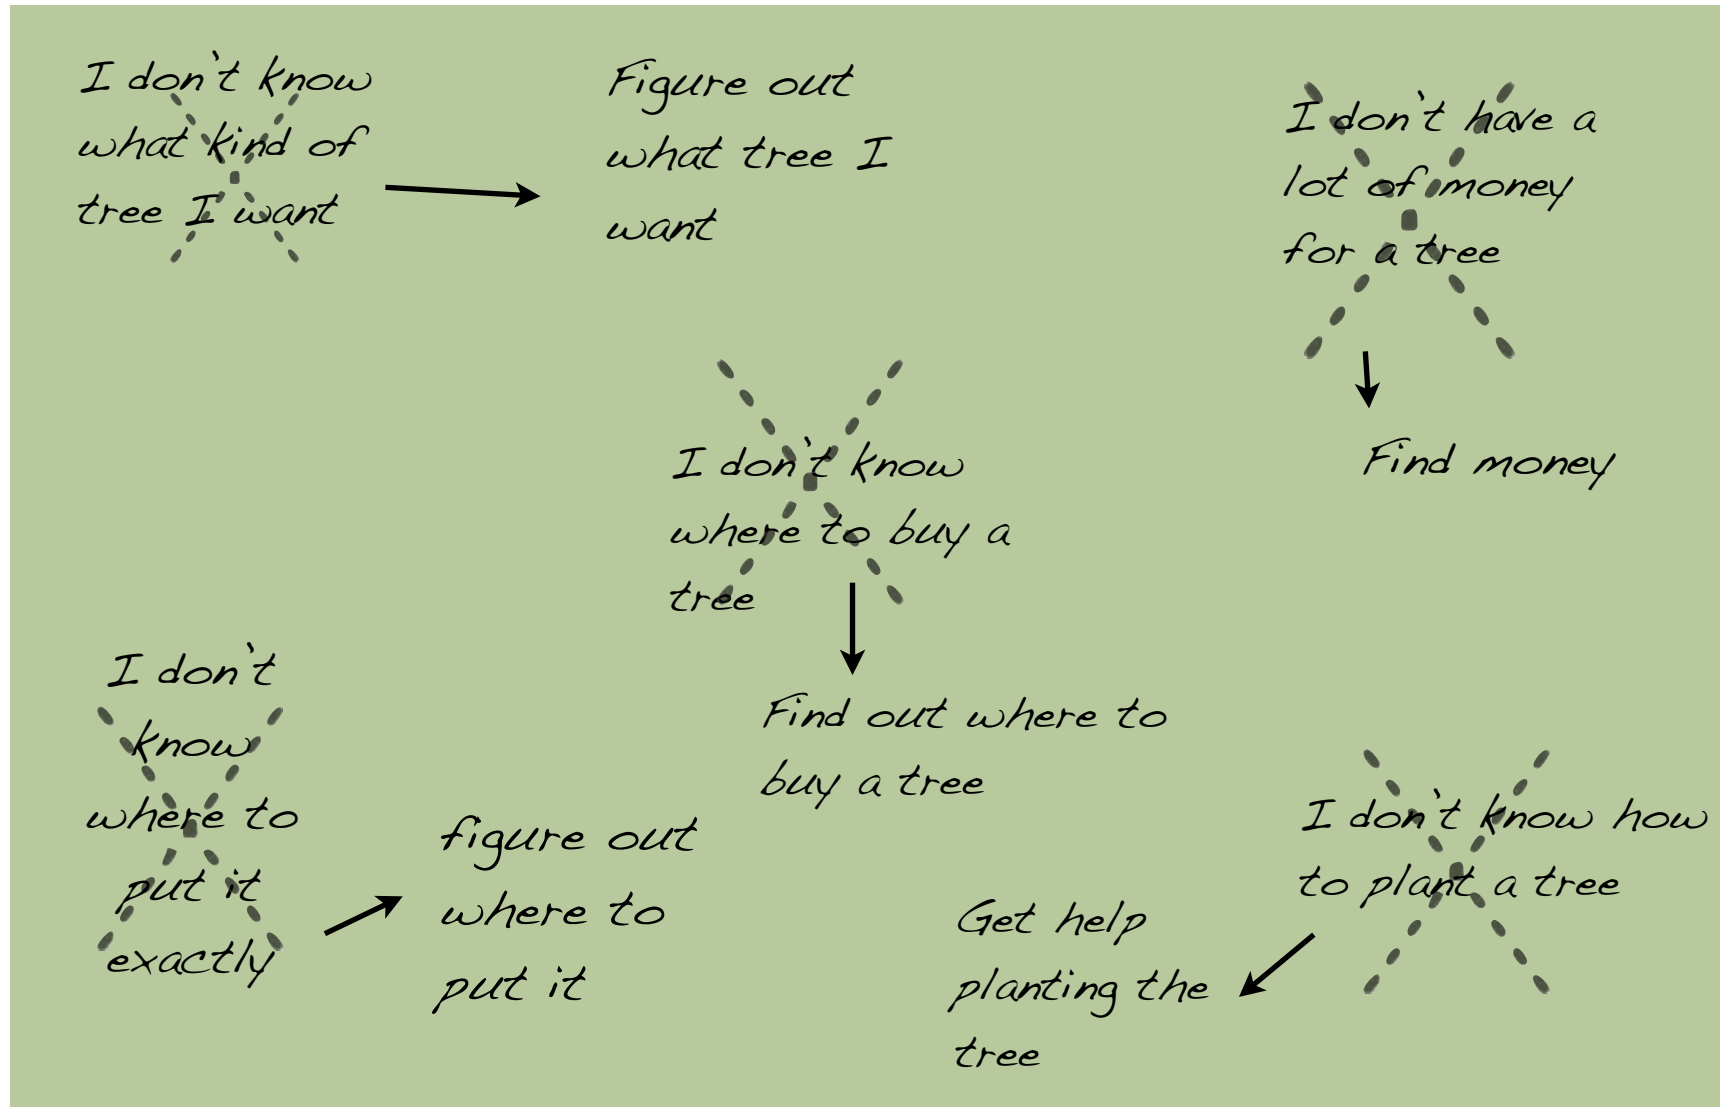 I don't know
what kind of
tree I want
Figure out
what tree I
want
I don't have a
lot of money
for a tree
Find money
I don't know
where to buy a
tree
Find out where to
buy a tree
I don't
know
where to
put it
exactly
figure out
where to
put it
I don't know how
to plant a tree
Get help
planting the
tree